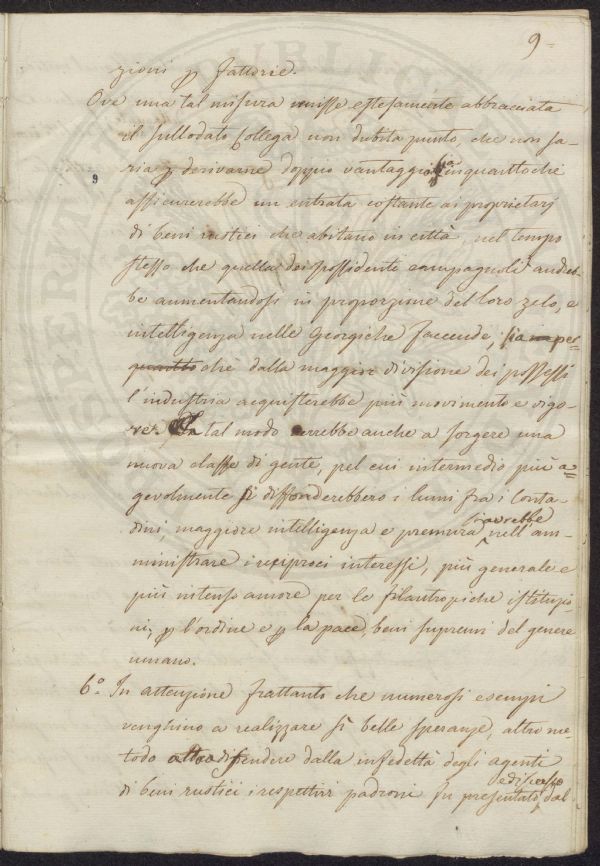 9=
zioni p fattorie.
Ove una tal misura venisse estesamente abbracciata
il sullodato Collega non dubita punto, che non sa-
9
ria p derivarne doppio vantaggio inquantoché
assicurerebbe un entrata costante ai proprietarj
di beni rustici che abitano in città, nel tempo
stesso che quella dei possidenti campagnoli andreb-
be aumentandosi in proporzione del loro zelo, e
intelligenza nelle Georgiche faccende, sia per-
quanto ché dalla maggior divisione dei possessi
l'industria acquisterebbe più movimento e vigo-
re. In tal modo verrebbe anche a sorgere una
nuova classe di gente, pel cui intermedio più a=
gevolmente si diffonderebbero i lumi fra i Conta-
dini, maggiore intelligenza e premura si avrebbe nell'am-
ministrare i reciproci interessi, più generale e
più intenso amore per le filantropiche istituzio-
ni, p l'ordine e p la pace, beni supremi del genere
umano.
6.° In attenzione frattanto che numerosi esempi
venghino a realizzare sì belle speranze, altro me-
todo di fendere dalla infedeltà degli agenti
di beni rustici i respettivi padroni fu presentato, dal